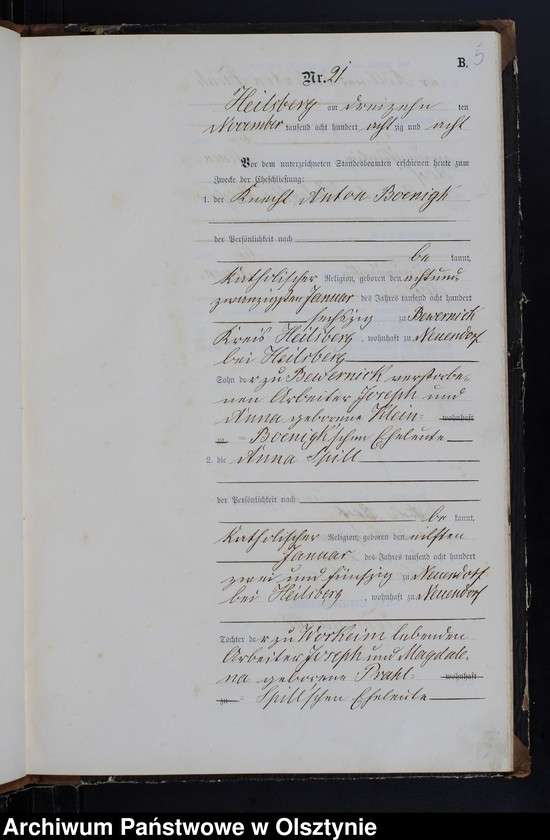 B. 5
Nr. 21.
Heilsberg am dreizehn ten
November tausend acht hundert achtzig und acht
Vor dem unterzeichneten Standesbeamten erschienen heute zum
Zwecke der Eheschließung:
1. der Knecht Anton Boenigk
der Persönlichkeit nach
be kannt,
katholischer Religion, geboren den achtund-
zwanzigsten Januar des Jahres tausend acht hundert
sechszig zu Bewernick
Kreis Heilsberg, wohnhaft zu Neuendorf
bei Heilsberg
Sohn der zu Bewernick verstorbe-
nen Arbeiter Joseph und
Anna geborene Klein- wohnhaft
zu = Boenigk'schen Eheleute
2. die Anna Spill
der Persönlichkeit nach
be kannt,
katholischer Religion, geboren den eilften
Januar des Jahres tausend acht hundert
zwei und fünfzig zu Neuendorf
bei Heilsberg, wohnhaft zu Neuendorf
Tochter der zu Workeim lebenden
Arbeiter Joseph und Magdale-
na geborene Prahl- wohnhaft
zu = Spill'schen Eheleute
Archiwum Państwowe w Olsztynie